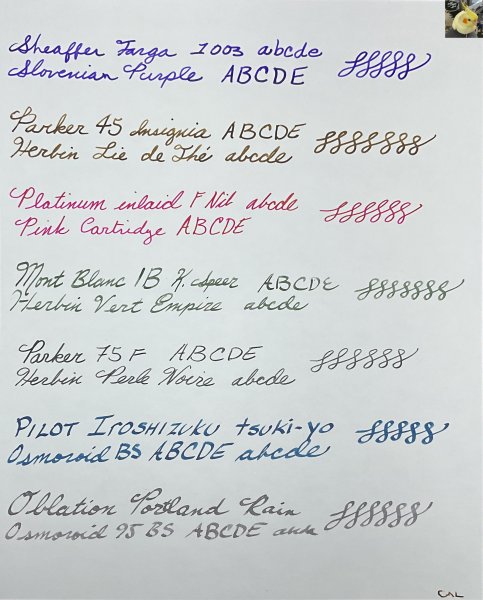 Sheaffer Targa 1003 abcde
Slovenian Purple ABCDE
Parker 45 Insignia ABCDE
Herbin Lie de Thé abcde
Platinum inlaid F Nib abcde
Pink Cartridge ABCDE
Mont Blanc 1B K. Speer ABCDE
Herbin Vert Empire abcde
Parker 75 F ABCDE
Herbin Perle Noire abcde
PILOT IROSHIZUKU tsuki-yo
Osmoroid BS ABCDE abcde
Oblation Portland Rain
Osmoroid 95 BS ABCDE
CAL